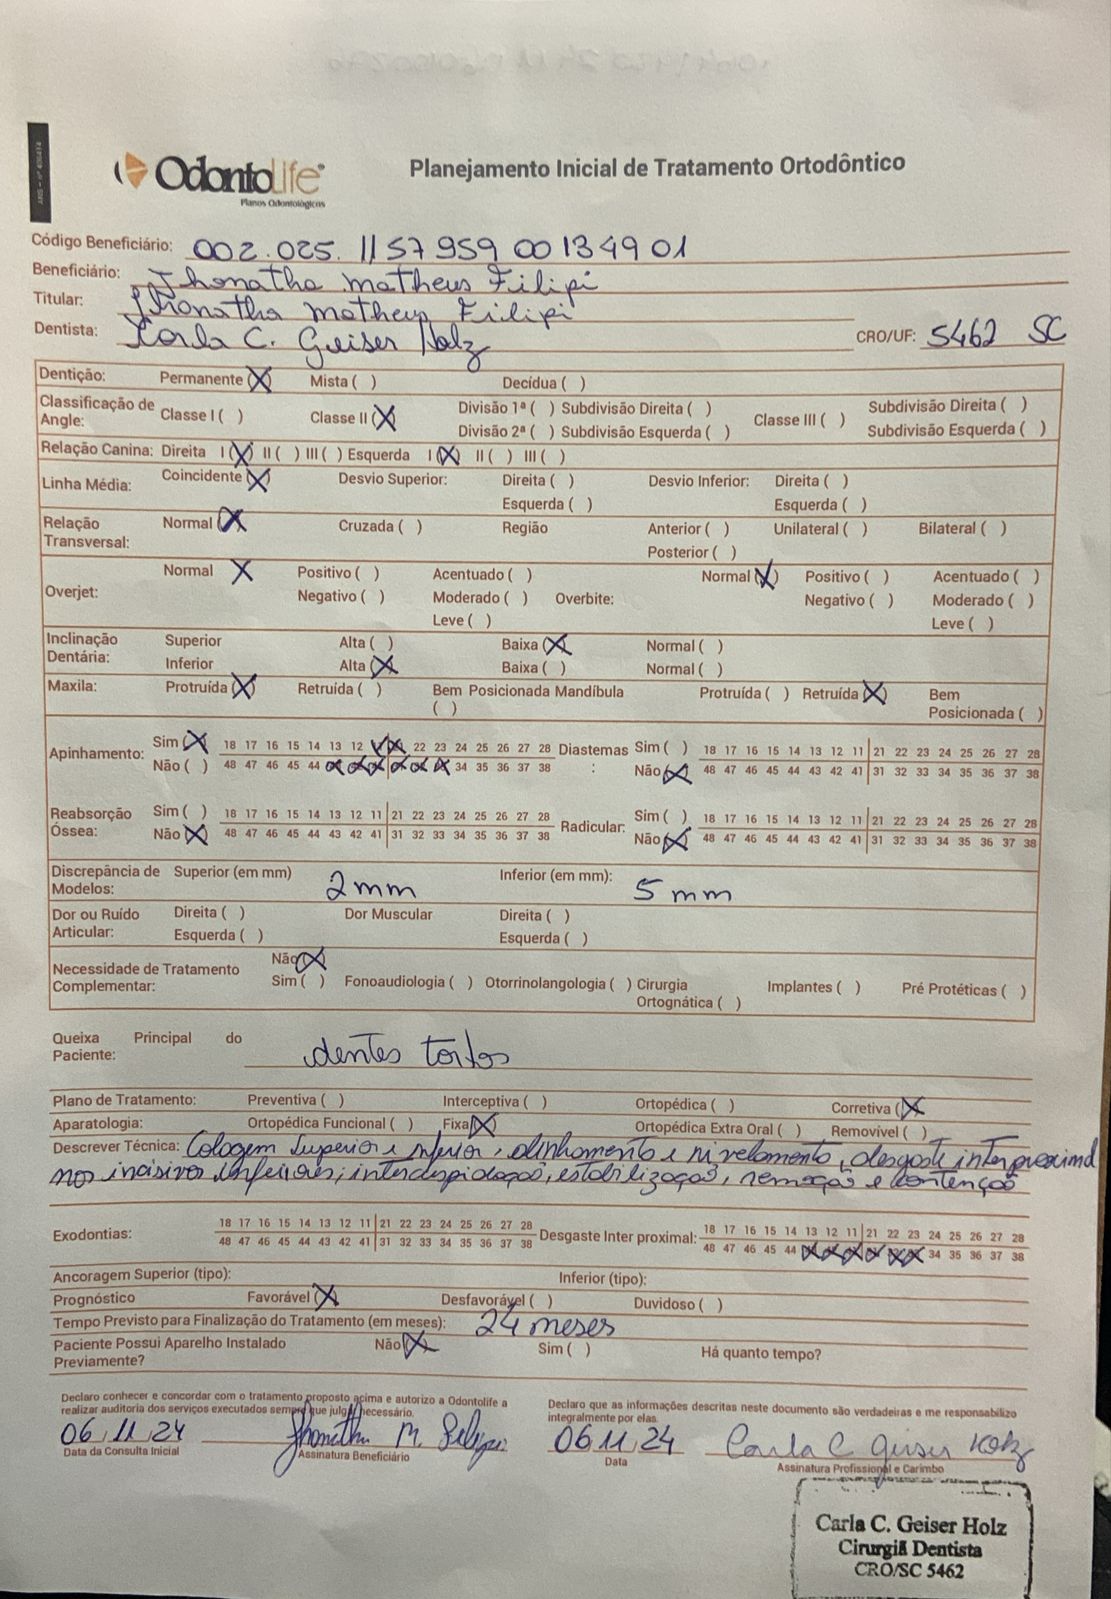 OdontoLife
Planos Odontológicos
Planejamento Inicial de Tratamento Ortodôntico
Código Beneficiário: 002.025.1157 959 00 1349 01
Beneficiário: Jhonatha Matheus Filipi
Titular: Jhonatha Matheus Filipi
Dentista: Carla C. Geiser Holz CRO/UF: 5462 SC
Dentição: Permanente (X) Mista ( ) Decídua ( )
Classificação de Angle: Classe I ( ) Classe II (X) Divisão 1ª ( ) Subdivisão Direita ( ) Classe III ( ) Subdivisão Direita ( )
Divisão 2ª ( ) Subdivisão Esquerda ( ) Subdivisão Esquerda ( )
Relação Canina: Direita I (X) II ( ) III ( ) Esquerda I (X) II ( ) III ( )
Linha Média: Coincidente (X) Desvio Superior: Direita ( ) Desvio Inferior: Direita ( )
Esquerda ( ) Esquerda ( )
Relação Transversal: Normal (X) Cruzada ( ) Região Anterior ( ) Unilateral ( ) Bilateral ( )
Posterior ( )
Overjet: Normal X Positivo ( ) Acentuado ( ) Overbite: Normal (X) Positivo ( ) Acentuado ( )
Negativo ( ) Moderado ( ) Negativo ( ) Moderado ( )
Leve ( ) Leve ( )
Inclinação Dentária: Superior Alta ( ) Baixa (X) Normal ( )
Inferior Alta (X) Baixa ( ) Normal ( )
Maxila: Protruída (X) Retruída ( ) Bem Posicionada ( ) Mandíbula Protruída ( ) Retruída (X) Bem Posicionada ( )
Apinhamento: Sim (X) 18 17 16 15 14 13 12 22 23 24 25 26 27 28 Diastemas: Sim ( ) 18 17 16 15 14 13 12 11 21 22 23 24 25 26 27 28
Não ( ) 48 47 46 45 44 34 35 36 37 38 Não (X) 48 47 46 45 44 43 42 41 31 32 33 34 35 36 37 38
Reabsorção Óssea: Sim ( ) 18 17 16 15 14 13 12 11 21 22 23 24 25 26 27 28 Radicular: Sim ( ) 18 17 16 15 14 13 12 11 21 22 23 24 25 26 27 28
Não (X) 48 47 46 45 44 43 42 41 31 32 33 34 35 36 37 38 Não (X) 48 47 46 45 44 43 42 41 31 32 33 34 35 36 37 38
Discrepância de Modelos: Superior (em mm) 2 mm Inferior (em mm): 5 mm
Dor ou Ruído Articular: Direita ( ) Dor Muscular Direita ( )
Esquerda ( ) Esquerda ( )
Necessidade de Tratamento Complementar: Não (X)
Sim ( ) Fonoaudiologia ( ) Otorrinolangologia ( ) Cirurgia Ortognática ( ) Implantes ( ) Pré Protéticas ( )
Queixa Principal do Paciente: dentes tortos
Plano de Tratamento: Preventiva ( ) Interceptiva ( ) Ortopédica ( ) Corretiva (X)
Aparatologia: Ortopédica Funcional ( ) Fixa (X) Ortopédica Extra Oral ( ) Removível ( )
Descrever Técnica: Colagem superior e inferior, alinhamento e nivelamento, desgaste interproximal
nos incisivos inferiores, intercuspidação, estabilização, remoção e contenção
Exodontias: 18 17 16 15 14 13 12 11 21 22 23 24 25 26 27 28 Desgaste Inter proximal: 18 17 16 15 14 13 12 11 21 22 23 24 25 26 27 28
48 47 46 45 44 43 42 41 31 32 33 34 35 36 37 38 48 47 46 45 44 34 35 36 37 38
Ancoragem Superior (tipo): Inferior (tipo):
Prognóstico Favorável (X) Desfavorável ( ) Duvidoso ( )
Tempo Previsto para Finalização do Tratamento (em meses): 24 meses
Paciente Possui Aparelho Instalado Previamente? Não (X) Sim ( ) Há quanto tempo?
Declaro conhecer e concordar com o tratamento proposto acima e autorizo a Odontolife a
realizar auditoria dos serviços executados sempre que julgar necessário.
Declaro que as informações descritas neste documento são verdadeiras e me responsabilizo
integralmente por elas.
06,11,24 Jhonatha M. Filipi 06 11 24 Carla C Geiser Holz
Data da Consulta Inicial Assinatura Beneficiário Data Assinatura Profissional e Carimbo
Carla C. Geiser Holz
Cirurgiã Dentista
CRO/SC 5462